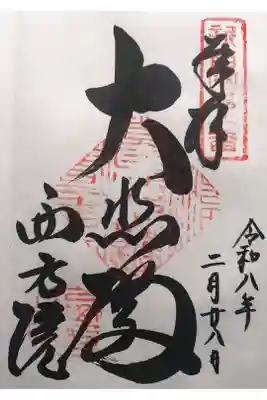 奉拝
大悲殿
西方院
令和八年
二月廿八日